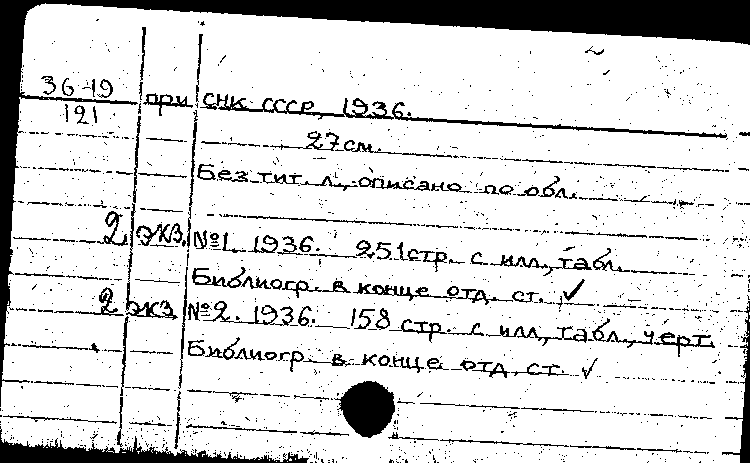 36-19
121
при СНК СССР, 1936.
27см.
Без тит. л., описано по обл.
2 экз. №1. 1936. 251стр. с илл., табл.
Библиогр. в конце отд. ст. ✓
2 экз. №2. 1936. 158 стр. с илл., табл., черт.
Библиогр. в конце отд. ст. ✓